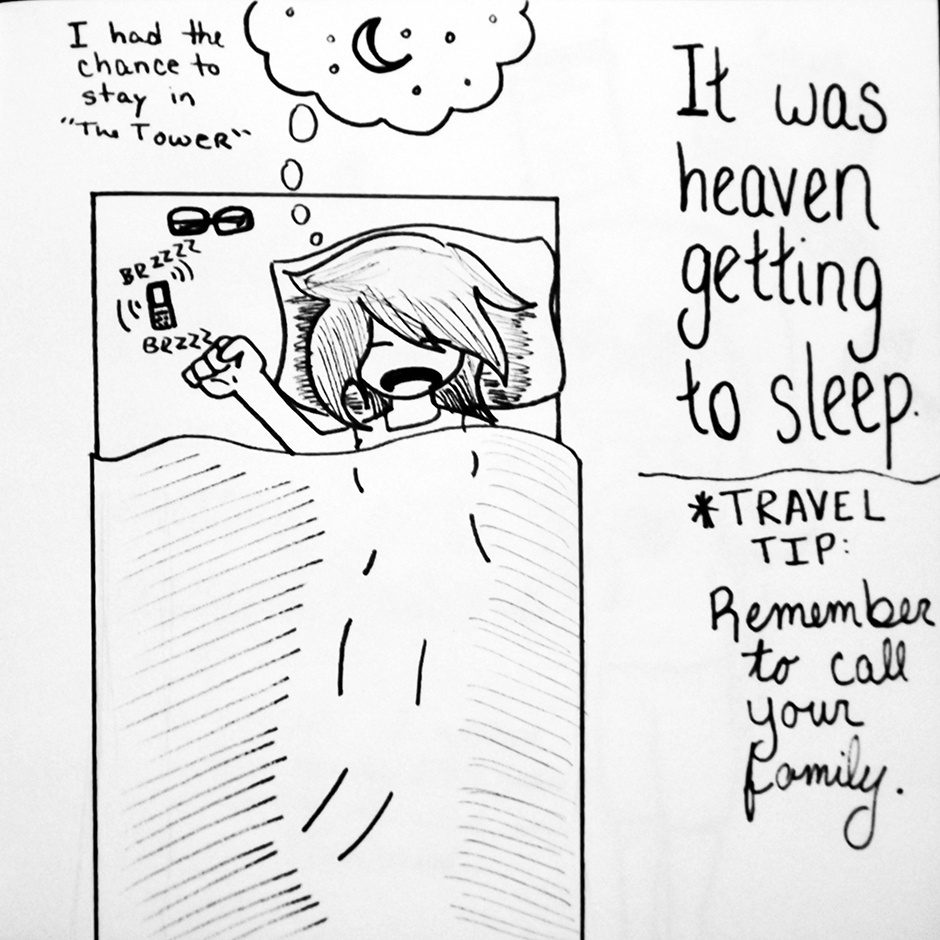 I had the
chance to
stay in
"The Tower"
BRZZZZ
BRZZZ
It was
heaven
getting
to sleep.
*TRAVEL
TIP:
Remember
to call
your
family.